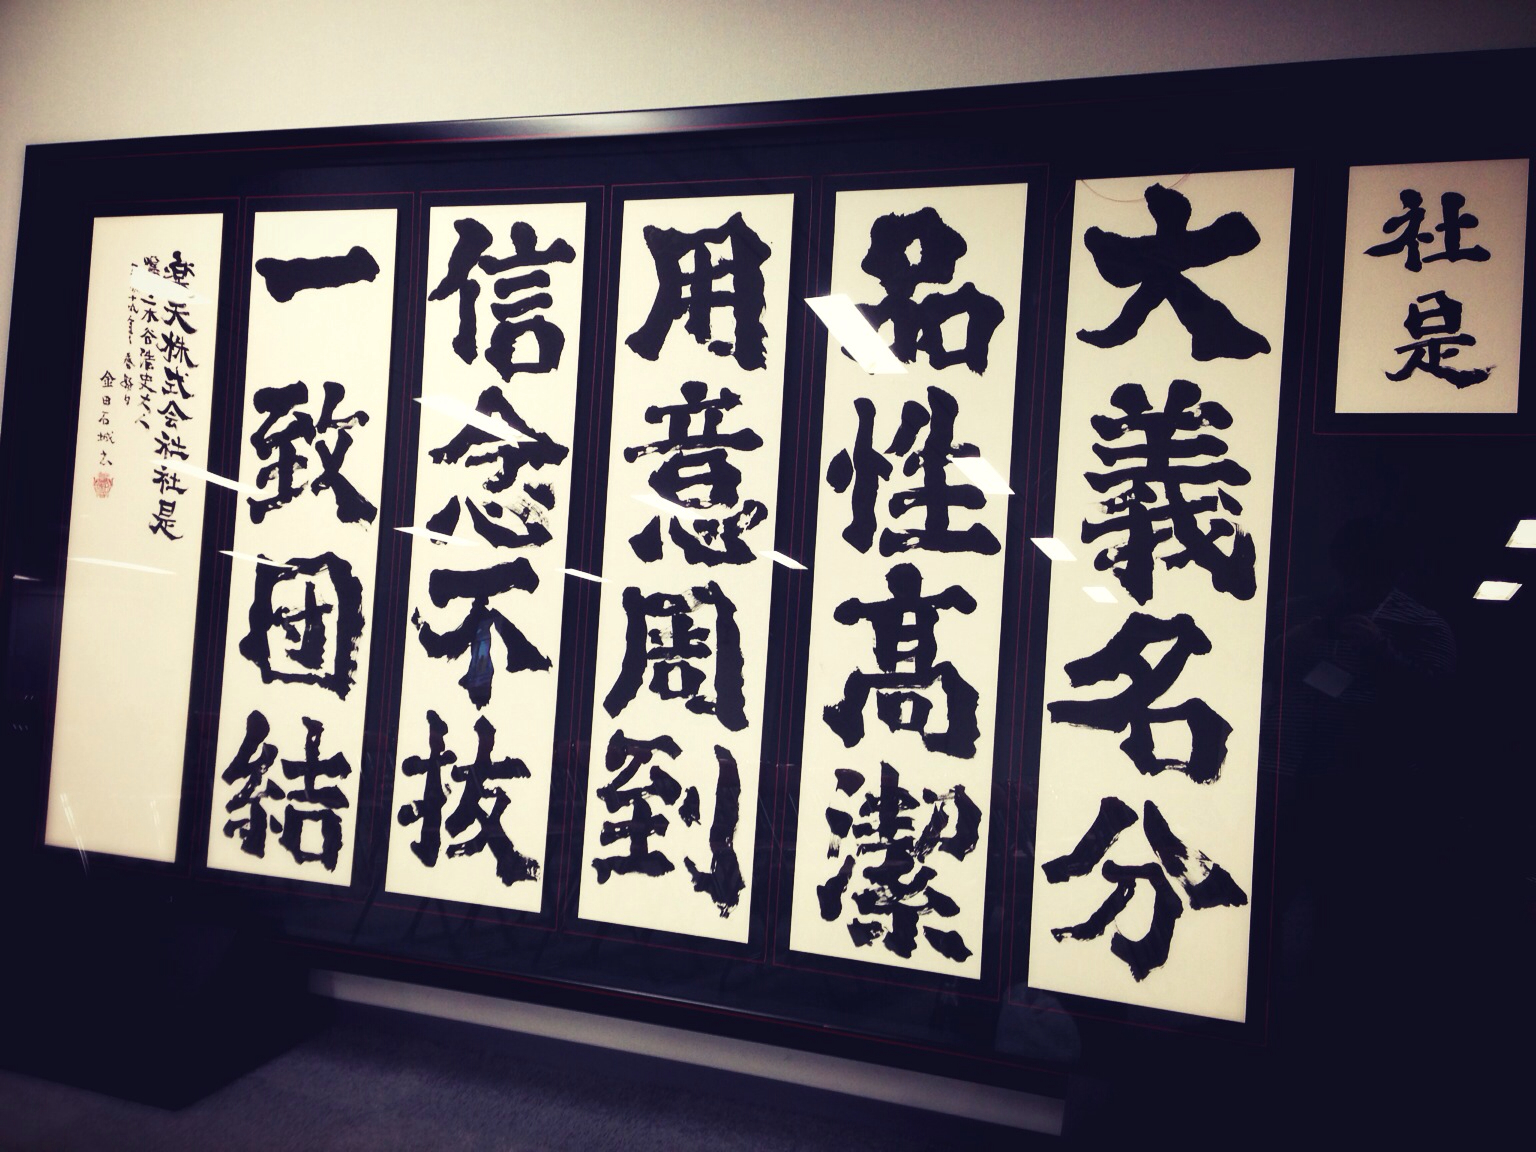 社是
大義名分
品性高潔
用意周到
信念不抜
一致団結
楽天株式会社社是
三木谷浩史大人
金田石城書